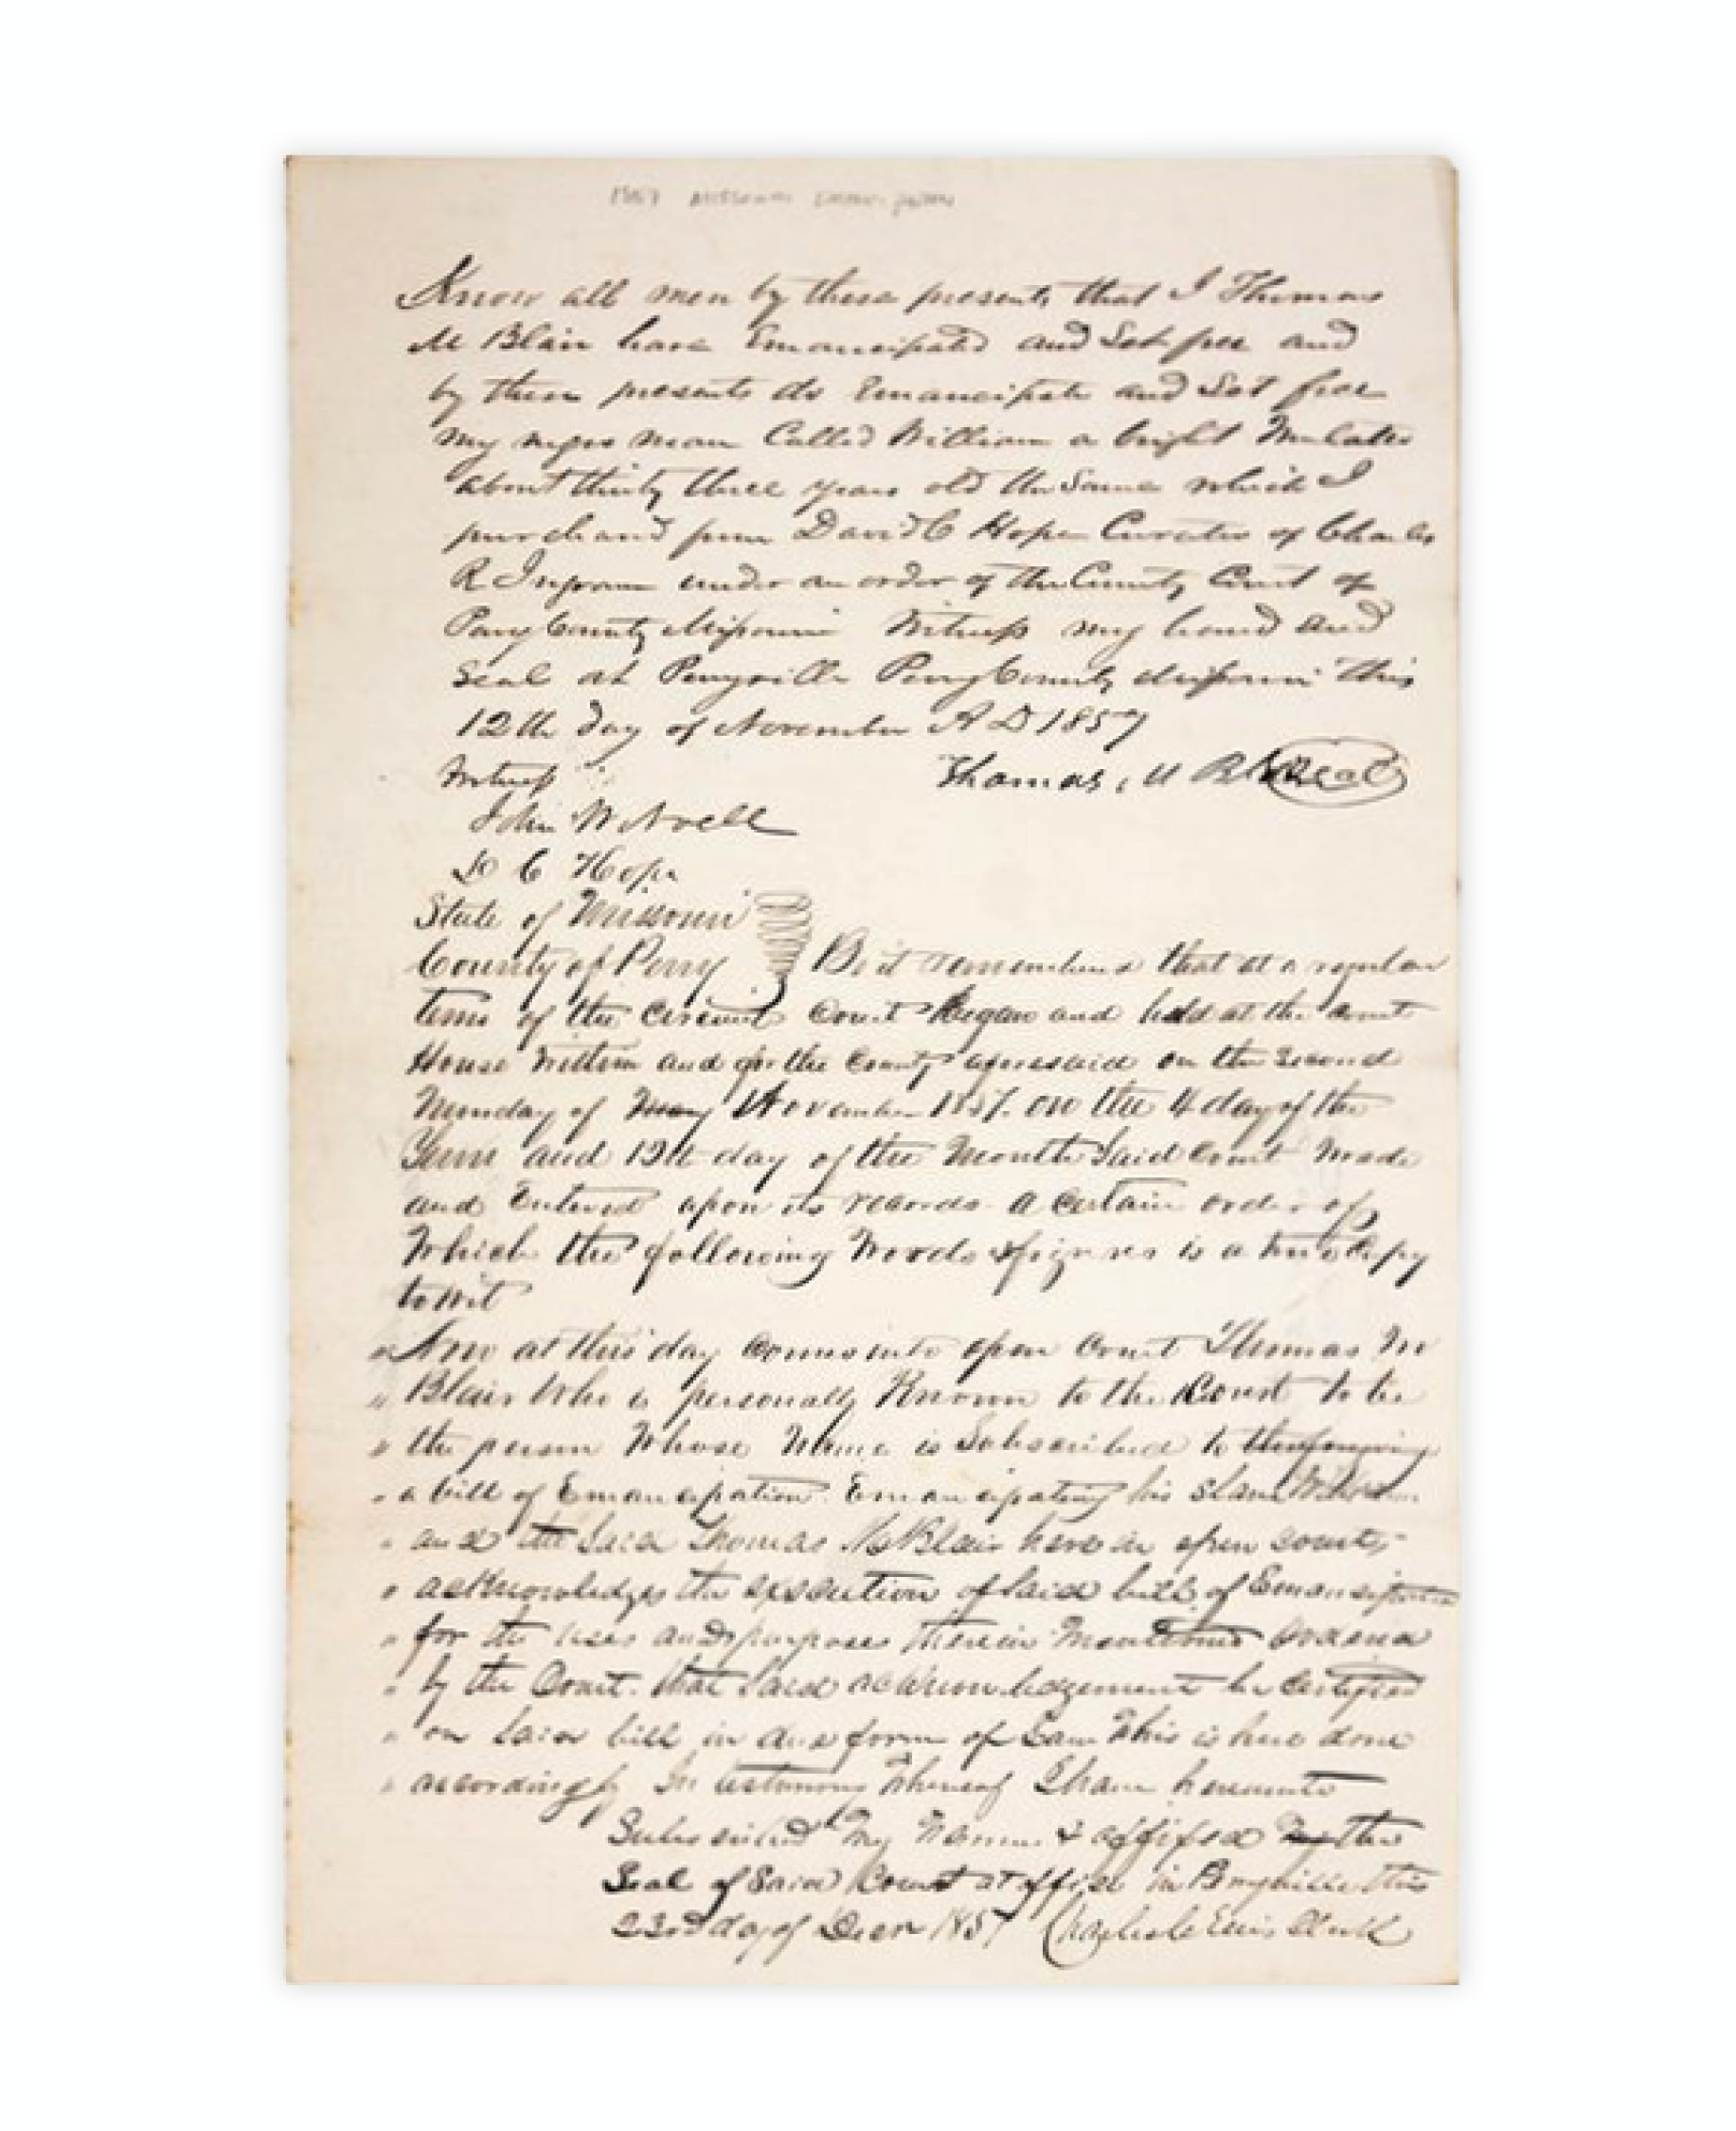 1857 Missouri Emancipation
Know all men by these presents that I Thomas
M Blair have Emancipated and Set free and
by these presents do Emancipate and Set free
my negro man Called William a bright Mulatto
about thirty three years old the Same which I
purchased from David C Hope Curator of Charles
R Ingram under an order of the County Court of
Perry County Missouri Witness my hand and
Seal at Perryville Perry County Missouri this
12th day of November A D 1857
Witness Thomas, M Blair Seal
John W Noell
D C Hope
State of Missouri
County of Perry Be it remembered that at a regular
term of the Circuit Court Began and held at the Court
House Within and for the County aforesaid on the Second
Monday of May November 1857. on the 4 day of the
Term and 12th day of the Month Said Court Made
and Entered upon its records a Certain order of
Which the following Words & figures is a true Copy
to Wit
" Now at this day Comes into open Court Thomas M
" Blair Who is personally Known to the Court to be
" the person Whose Name is Subscribed to the foregoing
" a bill of Emancipation. Emancipating his slave William
" and the Said Thomas M Blair here in open court,
" acknowledges the execution of Said bill of Emancipation
" for the uses and purposes therein Mentioned ordered
" by the Court. that Said acknowledgement be Certified
" on Said bill in due form of Law Which is here done
" accordingly In testimony Whereof I have hereunto
Subscribed My Name & affixed the
Seal of Said Court at office in Perryville this
23rd day of Decr 1857 Ellis Clerk